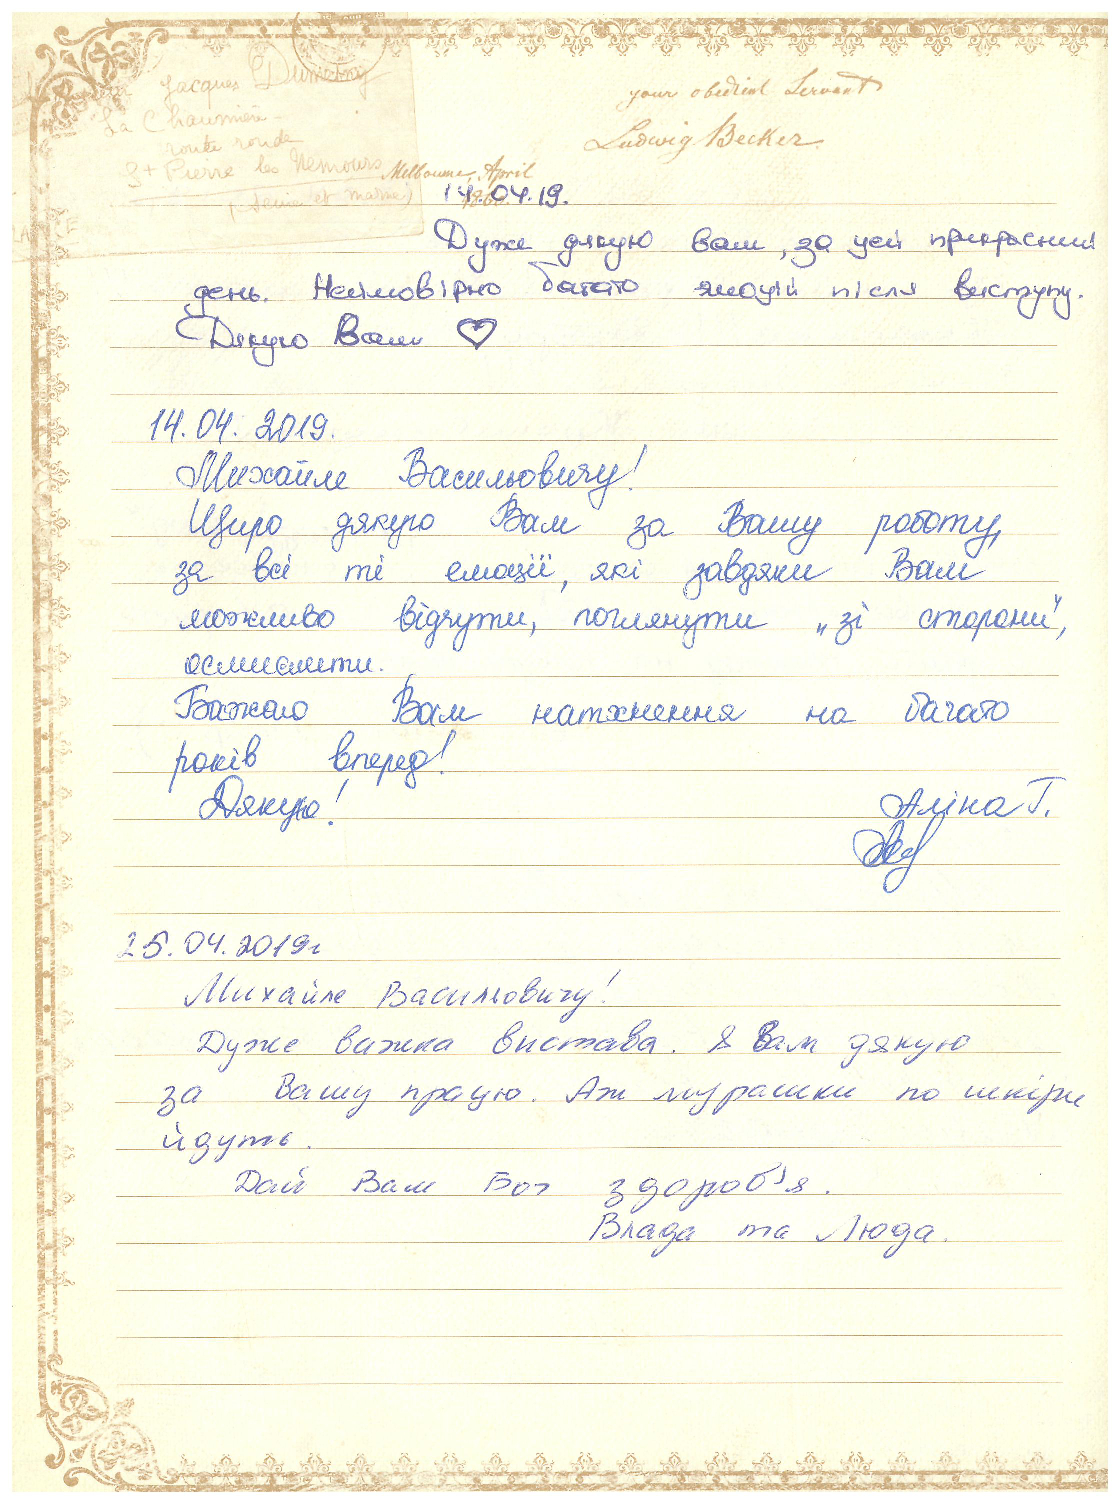 Jacques Dumartry
La Chaumière
route ronde
St Pierre les Nemours
(Seine et Marne)
your obedient Servant
Ludwig Becker.
Melbourne, April
14.04.19.
Дуже дякую вам, за цей прекрасний
день. Неймовірно багато емоцій після виступу.
Дякую Вам ♡
14.04.2019.
Михайле Васильовичу!
Щиро дякую Вам за Вашу роботу,
за всі ті емоції, які завдяки Вам
можливо відчути, поглянути „зі сторони",
осмислити.
Бажаю Вам натхнення на багато
років вперед!
Дякую!
Аліна Г.
25.04.2019г
Михайле Васильовичу!
Дуже важка вистава. Я Вам дякую
за Вашу працю. Аж мурашки по шкіри
йдуть.
Дай Вам Бог здоров'я.
Влада та Люда.